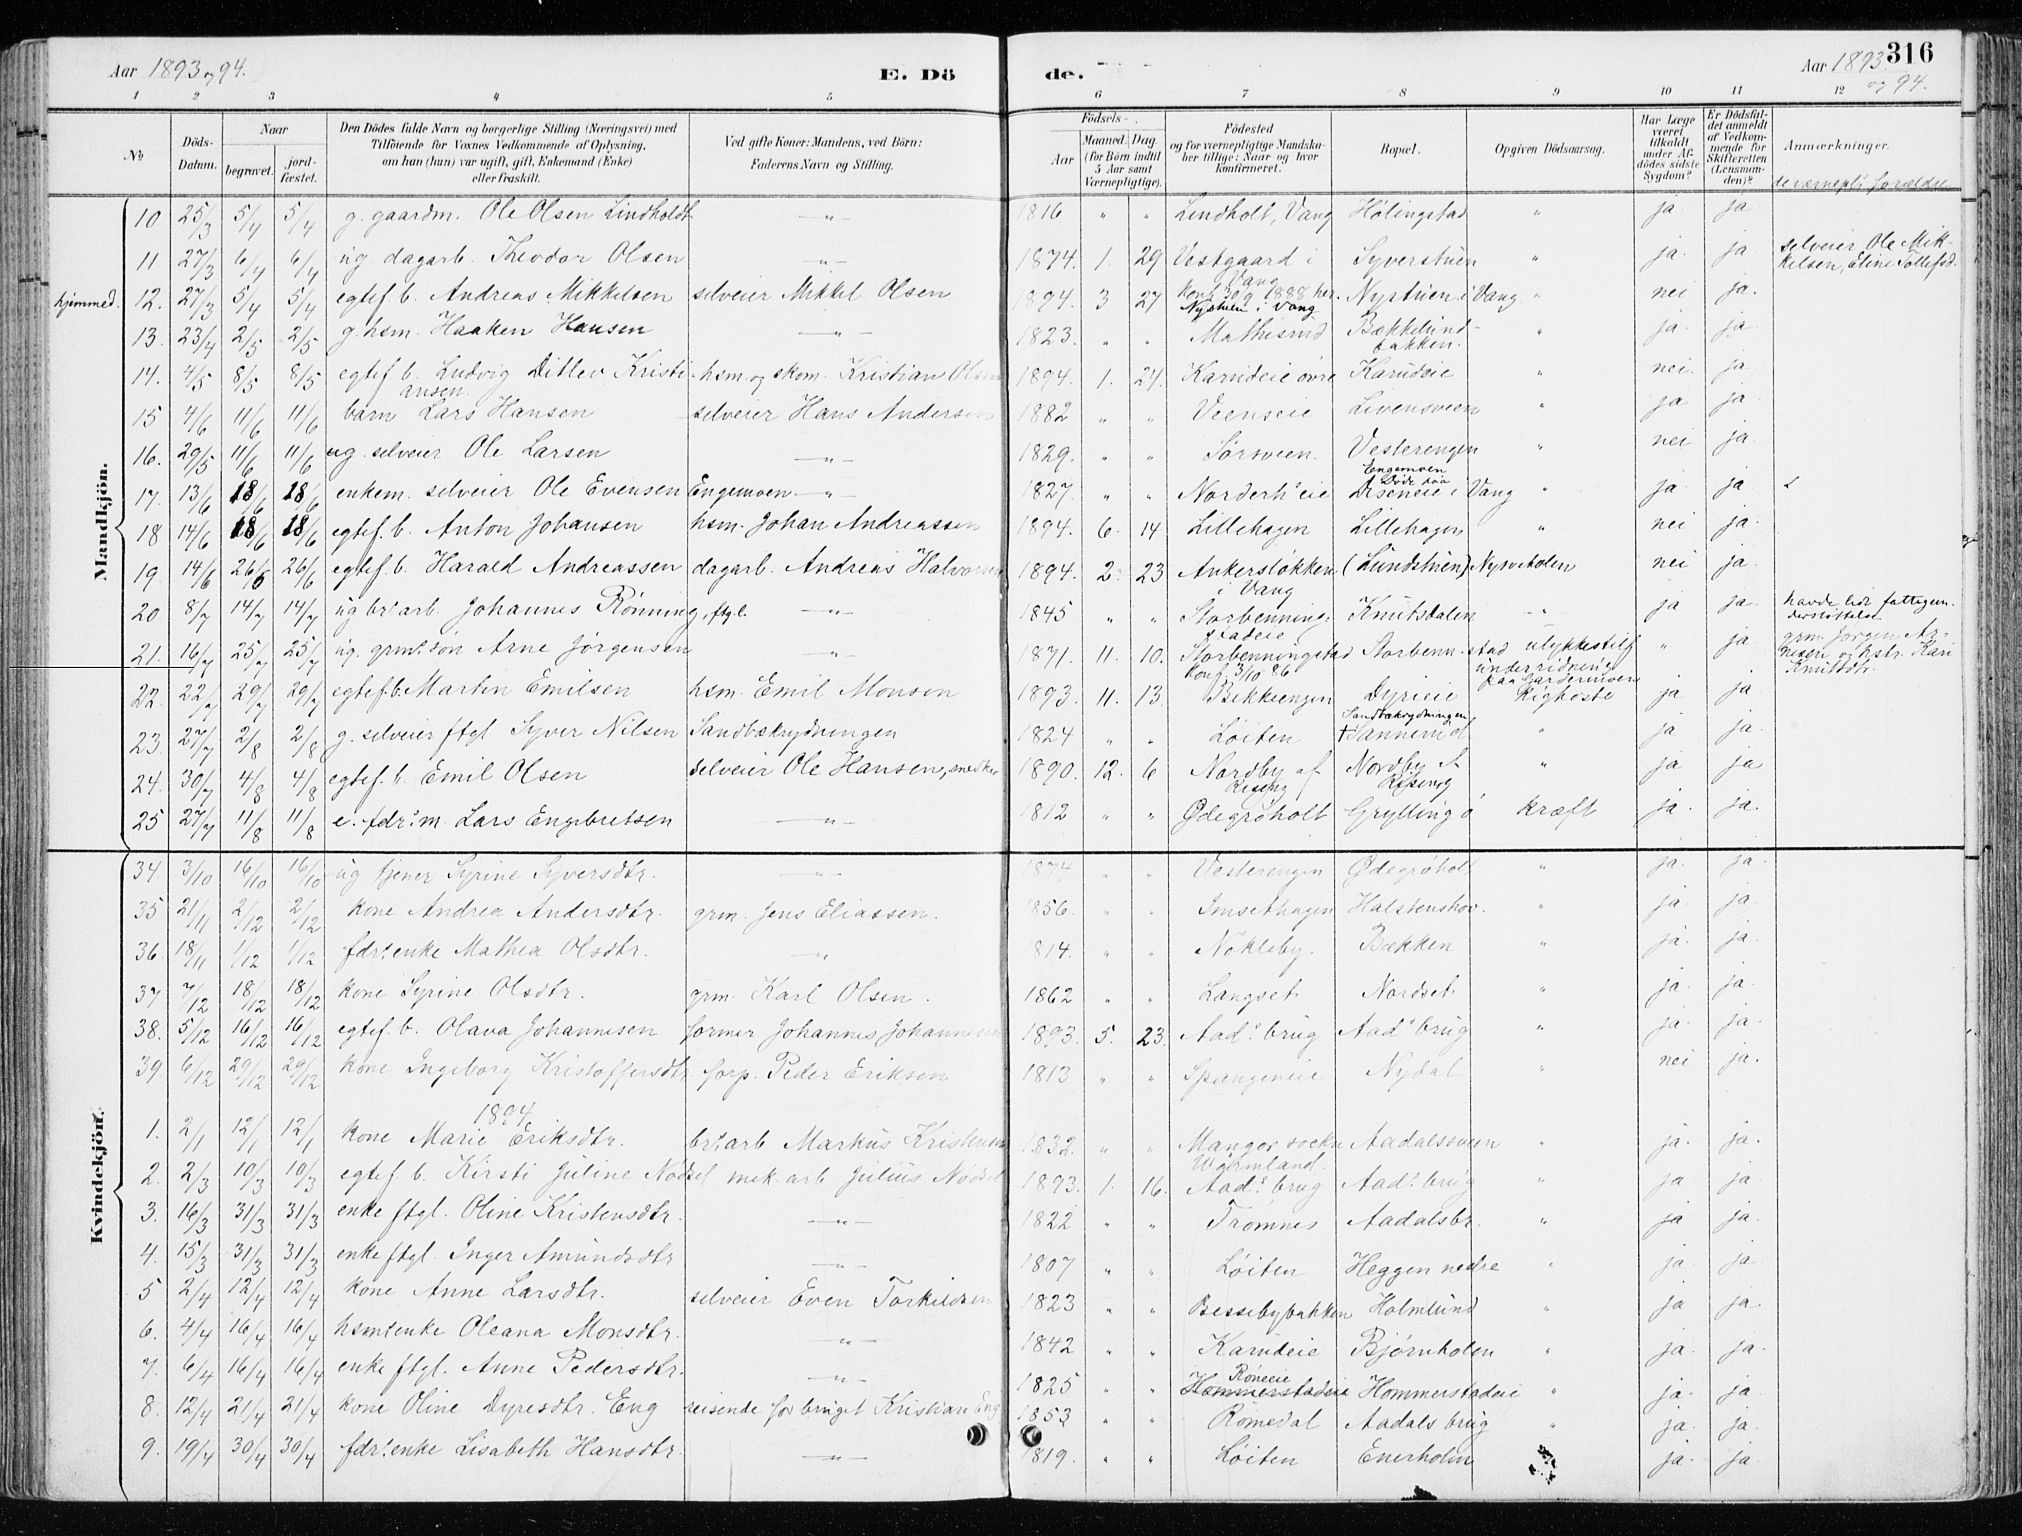 Aar 1893 og 94.
E. Dö
de.
Aar 1893 316
og 94.
1 2 3 4 5 6 7 8 9 10 11 12
No
Döds-Datum.
Naar
begravet.
jord-fæstet.
Den Dödes fulde Navn og borgerlige Stilling (Næringsvei) med
Tilföiende for Voxnes Vedkommende af Oplysning,
om han (hun) var ugift, gift, Enkemand (Enke)
eller fraskilt.
Ved gifte Koner: Mandens, ved Börn:
Faderens Navn og Stilling.
Födsels-
Aar
Maaned. Dag.
(for Börn indtil
5 Aar samt
Værnepligtige).
Födested
og for værnepligtige Mandska-
ber tillige: Naar og hvor
konfirmeret.
Bopæl.
Opgiven Dödsaarsag.
Har Læge
været
tilkaldt
under Af-
dödes sidste
Sygdom?
Er Dödsfal-
det anmeldt
af Vedkom-
mende for
Skifteretten
(Lensman-
den)?
Anmærkninger.
de værnepl. forældre
Mandkjön.
10 25/3 5/4 5/4 g. gaardm. Ole Olsen Lindholdt —"— 1816 " " Lindholt, Vang Hølingstad " ja ja
11. 27/3 6/4 6/4 ug dagarb. Theodor Olsen —"— 1874. 1. 29 Vestgaard i Vang Syverstuen " ja. ja selveier Ole Mik-
konf 30/9 1888 her. kelsen, Eline Tollefsd.
hjemmed. 12. 27/3 5/4 5/4 egtef. b. Andreas Mikkelsen selveier Mikkel Olsen 1894. 3 27 Nystuen i Vang Nystuen i Vang " nei ja.
13. 23/4 2/5 2/5 g. hsm. Haaken Hansen —"— 1823. " " Mathisrud Bækkelund-
bakken. " ja. ja
14. 4/5 8/5 8/5 egtef b. Ludvig Ditlev Kristi-
ansen hsm. og skom. Kristian Olsen 1894. 1. 24. Karudeie øvre Karudeie " nei. ja
15 4/6 11/6 11/6 barn Lars Hansen selveier Hans Andersen 1882 " " Veenseie Livensveen " ja ja.
16. 29/5 11/6 11/6 ug. selveier Ole Larsen —"— 1829. " " Sørsveen. Vesterengen " nei ja.
17. 13/6 18/6 18/6 enkem. selveier Ole Evensen Engemoen —"— 1827. " " Norderh's eie Engemoen
Døde paa
Arseneie i Vang " ja. ja.
18 14/6 18/6 18/6 egtef. b. Anton Johansen hsm. Johan Andreassen 1894. 6. 14 Lillehagen Lillehagen " nei ja.
19. 14/6 26/6 26/6 egtef. b. Harald Andreassen dagarb. Andreas Halvorsen 1894. 2. 23 Ankersløkken
i Vang (Lundstuen) Nysveholen nei ja.
20 8/7 14/7 14/7 ug br's arb. Johannes Rønning, ftgl. —"— 1845 " " Storbenning-
stadeie Knutsdalen —"— ja ja. havde lidt fattigun-
derstøttelse
21. 16/7 25/7 25/7 ug. grm's søn Arne Jørgensen —"— 1871. 11. 10. Storbenningstad
konf. 3/10 86 Storbenn.stad ulykkestilf
under ridning
paa Gardermoen " ja grm. Jørgen Ar-
nesen og hstr. Kari
Knutsdtr.
22. 22/7 29/7 29/7 egtef. b. Martin Emilsen hsm. Emil Monsen 1893. 11. 13. Bekkeengen Dyrieie Kighoste ja ja
23. 27/7 2/8 2/8 g. selveier ftgl Syver Nilsen Sandbakrydningen 1824 " " Løiten Sandbakrydningen
† Sannerud " ja. ja.
24. 30/7 4/8 4/8 egtef. b. Emil Olsen selveier Ole Hansen, snedker 1890. 12. 6 Nordby af
Rising Nordby af
Rising " ja ja
25 27/7 11/8 11/8 e. fdr's m. Lars Engebretsen —"— 1812 " " Ødegrøholt Grylling ø kræft ja. ja.
Kvindekjön.
34 3/10 16/10 16/10 ug tjener Syrine Syversdtr. —"— 1874 " " Vesterengen Ødegrøholt " ja. ja.
35 21/11 2/12 2/12 kone Andrea Andersdtr. grm. Jens Eliassen. 1856. " " Imsethagen Halstenshov. " ja. ja.
36 18/11 1/12 1/12 fdr's enke Mathea Olsdtr. " 1814. " " Nøkleby. Bækken " ja. ja.
37 7/12 18/12 18/12 kone Syrine Olsdtr. grm. Karl Olsen. 1862 " " Langset. Nordset. " ja. ja.
38. 5/12 16/12 16/12 egtef. b. Olava Johannesen former Johannes Johannesen 1893. 5. 23. Aad's brug Aad's brug " ja. ja.
39 6/12 29/12 29/12 kone Ingeborg Kristoffersdtr forp. Peder Eriksen 1813 " " Spangeneie Nydal " nei ja.
1894
1. 2/1 12/1 12/1 kone Marie Eriksdtr. br's arb Markus Kristensen 1832. " " Mangor socken
Wermland. Aadalsveen " ja. ja.
2. 2/3 10/3 10/3 egtef. b. Kirsti Juline Nødsel mek. arb Julius Nødsel 1893. 1. 16. Aad's brug Aad's brug " ja ja.
3. 16/3 31/3 31/3 enke ftgl. Oline Kristensdtr. —"— 1822 " " Trømnes Aadalsbr. " ja ja.
4. 15/3 31/3 31/3 enke ftgl. Inger Amundsdtr —"— 1807 " " Løiten Heggen nedre " ja ja
5 2/4 12/4 12/4 kone Anne Larsdtr. selveier Even Torkildsen 1823 " " Bessebybakken Holmlund " ja ja.
6. 4/4 16/4 16/4 hsms enke Oleana Monsdtr. —"— 1842 " " Karudeie Bjørnholen " ja. ja.
7. 6/4 16/4 16/4 enke ftgl. Anne Pedersdtr. —"— 1825 " " Røneeie
Hommerstadeie Hommerstadeie " ja. ja.
8. 12/4 21/4 21/4 kone Oline Dyresdtr. Eng reisende for bruget Kristian Eng 1853 " " Romedal Aadals brug " ja. ja.
9. 19/4 30/4 30/4 fdr's enke Lisabeth Hansdtr. —"— 1819. " " Løiten Enerholen ja. ja.